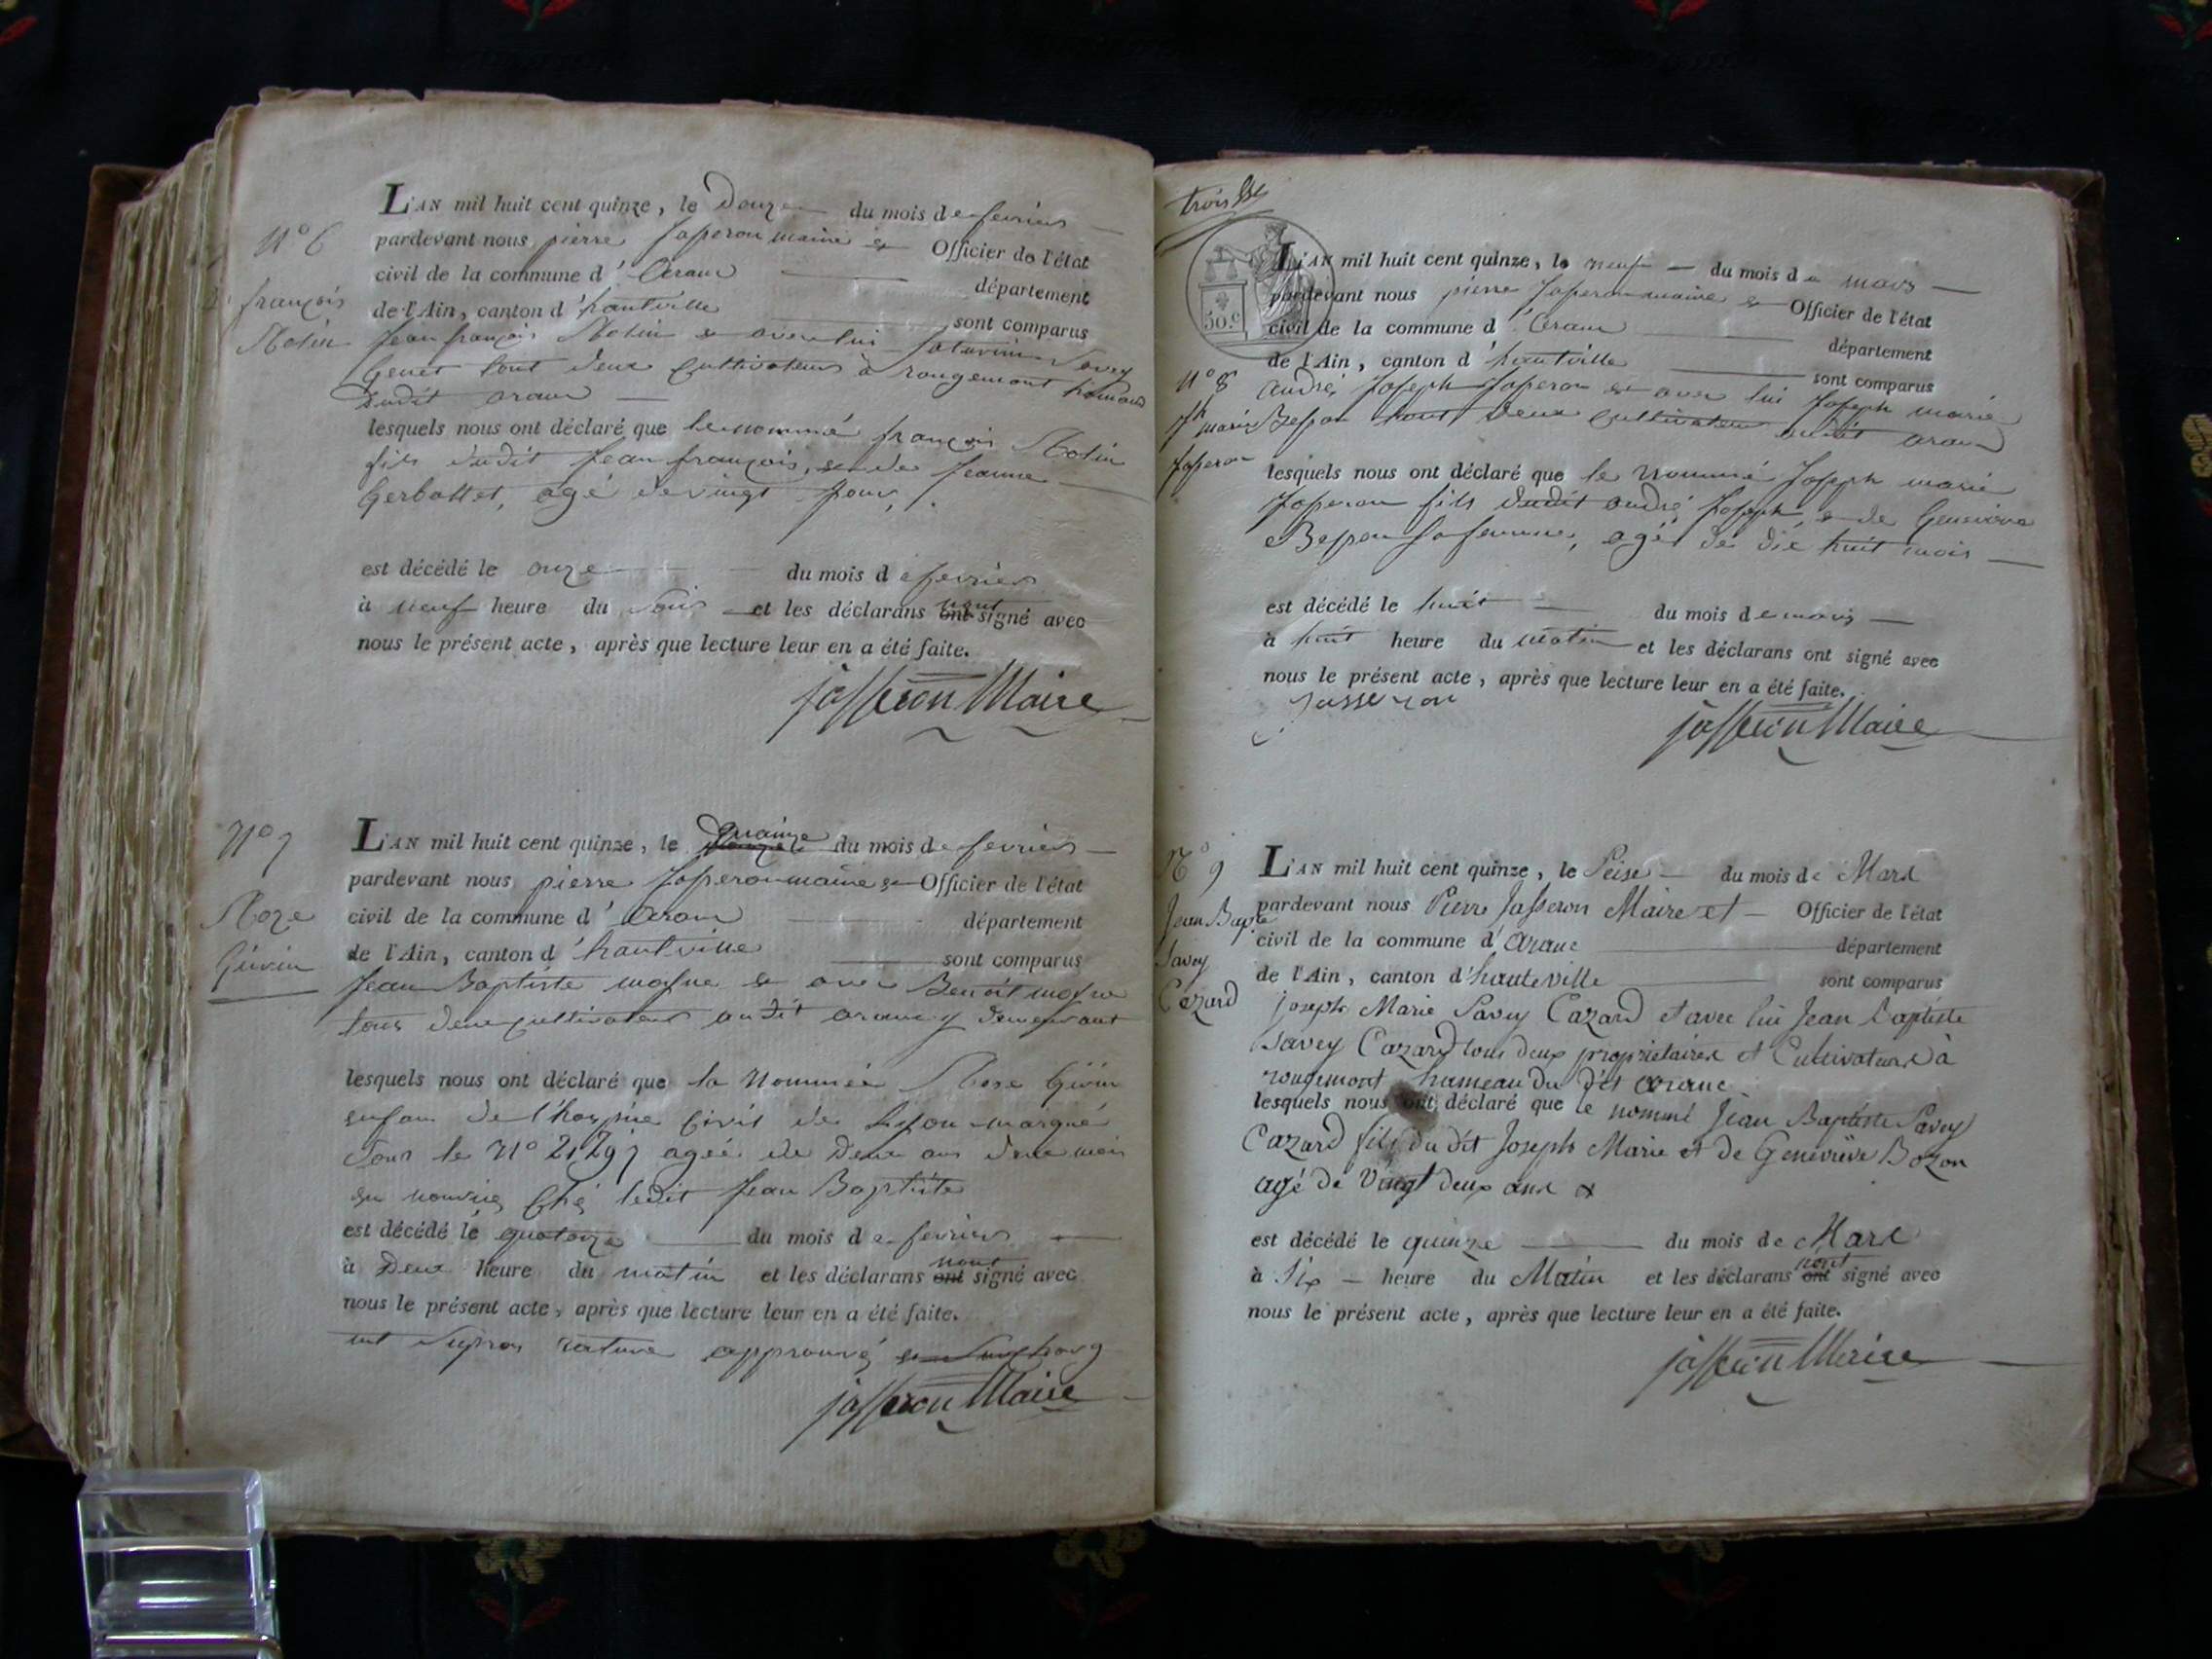 N° 6
françois
L'AN mil huit cent quinze, le Douze du mois de fevrier
pardevant nous pierre Josseron maire et Officier de l'état
civil de la commune d' Aranc département
de l'Ain, canton d' hautville sont comparus
Jean françois et avec lui Saturnin Savey
Genet tout deux Cultivateurs à rougemont hameau
dudit aranc
lesquels nous ont déclaré que le nommé françois
fils dudit Jean françois, et de Jeanne
Gerbollet, agé de vingt jour,
est décédé le onze du mois de fevrier
à neuf heure du Soir et les déclarans nont ont signé avec
nous le présent acte, après que lecture leur en a été faite.
josseron Maire
N° 7
Roze
L'AN mil huit cent quinze, le quinze du mois de fevrier
pardevant nous pierre Josseron maire et Officier de l'état
civil de la commune d' Aranc département
de l'Ain, canton d' hautville sont comparus
Jean Baptiste et avec Benoit
tous deux cultivateurs audit aranc y demeurant
lesquels nous ont déclaré que la Nommée Rose
enfan de l'hospice Civil de Lyon marqué
Sous le N° 21297 agée de Deux ans deux mois
en nourrice Ché ledit Jean Baptiste
est décédé le quatorze du mois de fevrier
à Deux heure du matin et les déclarans nont ont signé avec
nous le présent acte, après que lecture leur en a été faite.
mot rature approuvé
josseron Maire
trois
50.c
N° 8
Jh marie
Josseron
L'AN mil huit cent quinze, le neuf du mois de mars
pardevant nous pierre Josseron maire et Officier de l'état
civil de la commune d' Aranc département
de l'Ain, canton d' hautville sont comparus
André Joseph Josseron et avec lui Joseph marie
Besson tout deux Cultivateurs audit aranc
lesquels nous ont déclaré que le Nommé Joseph marie
Josseron fils dudit André Joseph et de Geneviève
Besson sa femme, agé de dix huit mois
est décédé le huit du mois de mars
à huit heure du matin et les déclarans ont signé avec
nous le présent acte, après que lecture leur en a été faite.
josseron
josseron Maire
N° 9
Jean Bapte
Savey
Cazard
L'AN mil huit cent quinze, le Seise du mois de Mars
pardevant nous Pierre Josseron Maire et Officier de l'état
civil de la commune d' Aranc département
de l'Ain, canton d' hauteville sont comparus
joseph Marie Savey Cazard et avec lui Jean baptiste
Savey Cazard tous deux propriétaires et Cultivateurs à
rougemont hameau du dit aranc
lesquels nous ont déclaré que le nommé Jean Baptiste Savey
Cazard fils du dit Joseph Marie et de Geneviève Bozon
agé de Vingt deux ans
est décédé le quinze du mois de Mars
à Six heure du Matin et les déclarans nont ont signé avec
nous le présent acte, après que lecture leur en a été faite.
josseron Maire